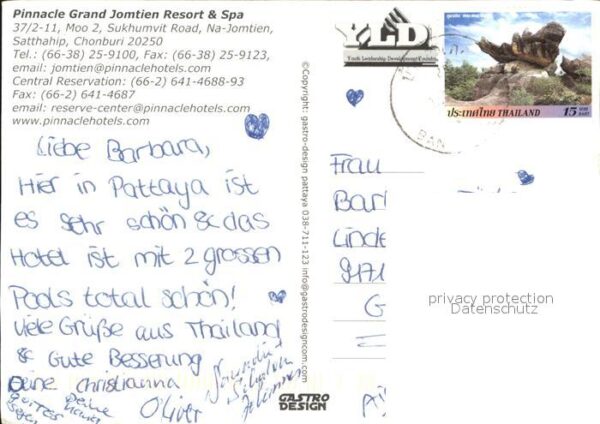 Pinnacle Grand Jomtien Resort & Spa
37/2-11, Moo 2, Sukhumvit Road, Na-Jomtien,
Satthahip, Chonburi 20250
Tel.: (66-38) 25-9100, Fax: (66-38) 25-9123,
email: jomtien@pinnaclehotels.com
Central Reservation: (66-2) 641-4688-93
Fax: (66-2) 641-4687
email: reserve-center@pinnaclehotels.com
www.pinnaclehotels.com
Liebe Barbara,
Hier in Pattaya ist
es sehr schön & das
Hotel ist mit 2 grossen
Pools total schön!
Viele Grüße aus Thailand
& Gute Besserung
Deine Christianna
Deine
Oliver
©Copyright: gastro-design pattaya 038-711-123 info@gastrodesigncom.com
GASTRO
DESIGN
YLD
Youth Leadership Development
ประเทศไทย THAILAND
15
BAHT
Frau
Bar
Linde
9171
G
privacy protection
Datenschutz